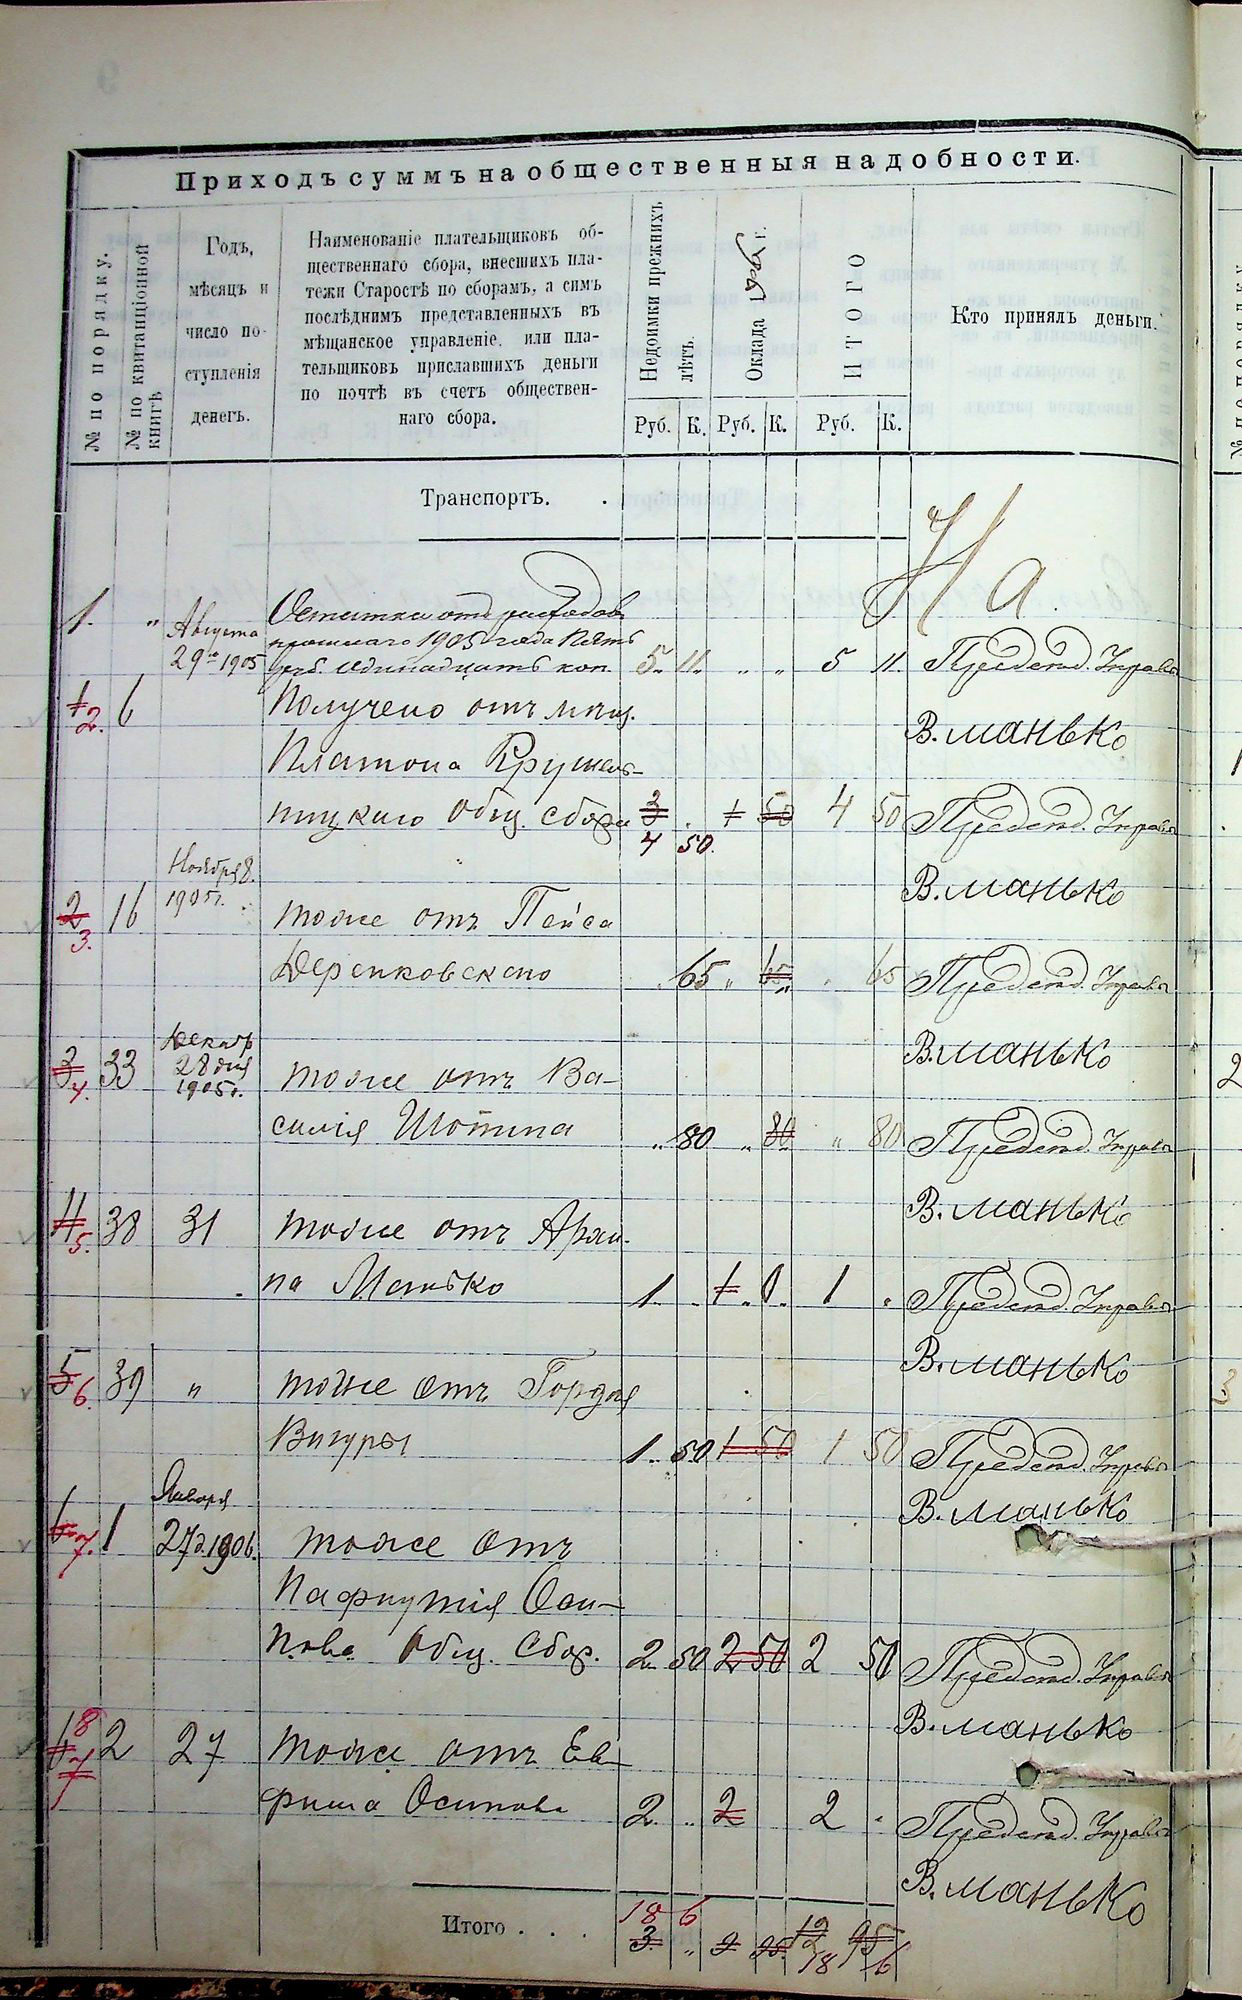 Приходъ суммъ на общественныя надобности.
№ по порядку.
№ по квитанціонной книгѣ
Годъ,
мѣсяцъ и
число по-
ступленія
денегъ.
Наименованіе плательщиковъ об-
щественнаго сбора, внесшихъ пла-
тежи Старостѣ по сборамъ, а симъ
послѣднимъ представленныхъ въ
мѣщанское управленіе. или пла-
тельщиковъ приславшихъ деньги
по почтѣ въ счетъ обществен-
наго сбора.
Недоимки прежнихъ
лѣтъ.
Оклада 1906 г.
ИТОГО
Кто принялъ деньги.
Руб. К. Руб. К. Руб. К.
Транспортъ. .
На.
1. " Августа Остатки отъ расходовъ
прошлаго 1905 года Пять
29го 1905 руб. Одинадцать коп. 5. 11. " " 5 11. Председ. Управы
1 2. 6 Получено отъ мѣщ. В. Манько
Платона Крушель-
ницкаго Общ. сбора 3 . 1 50 4 50 Председ. Управы
4 50.
Ноября 8. В. Манько
1905 г.
2 3. 16 тоже отъ Пейса
Деренковскаго " 65 " 65 " 65 Председ. Управы
Декабр В. Манько
3 4. 33 28 дня тоже отъ Ва-
1905 г.
силія Шопина " 80 " 80 " 80 Председ. Управы
В. Манько
4 5. 38 31 тоже отъ Архи-
па Манько 1. . 1. 0. 1 . Председ. Управы
В. Манько
5 6. 39 " тоже отъ Гордѣя
Вигуры 1. 50 1 50 1 50 Председ. Управы
Января В. Манько
6 7. 1 27 г. 1906. тоже отъ
Пафнутія Оси-
пова Общ. Сбор. 2 50 2 50 2 50 Председ. Управы
В. Манько
6 7 8 2 27 тоже отъ Ев-
фима Осипова 2. .. 2 2 . Председ. Управы
В. Манько
Итого . . . 18 6
3. " 9 95. 12 95
18 6